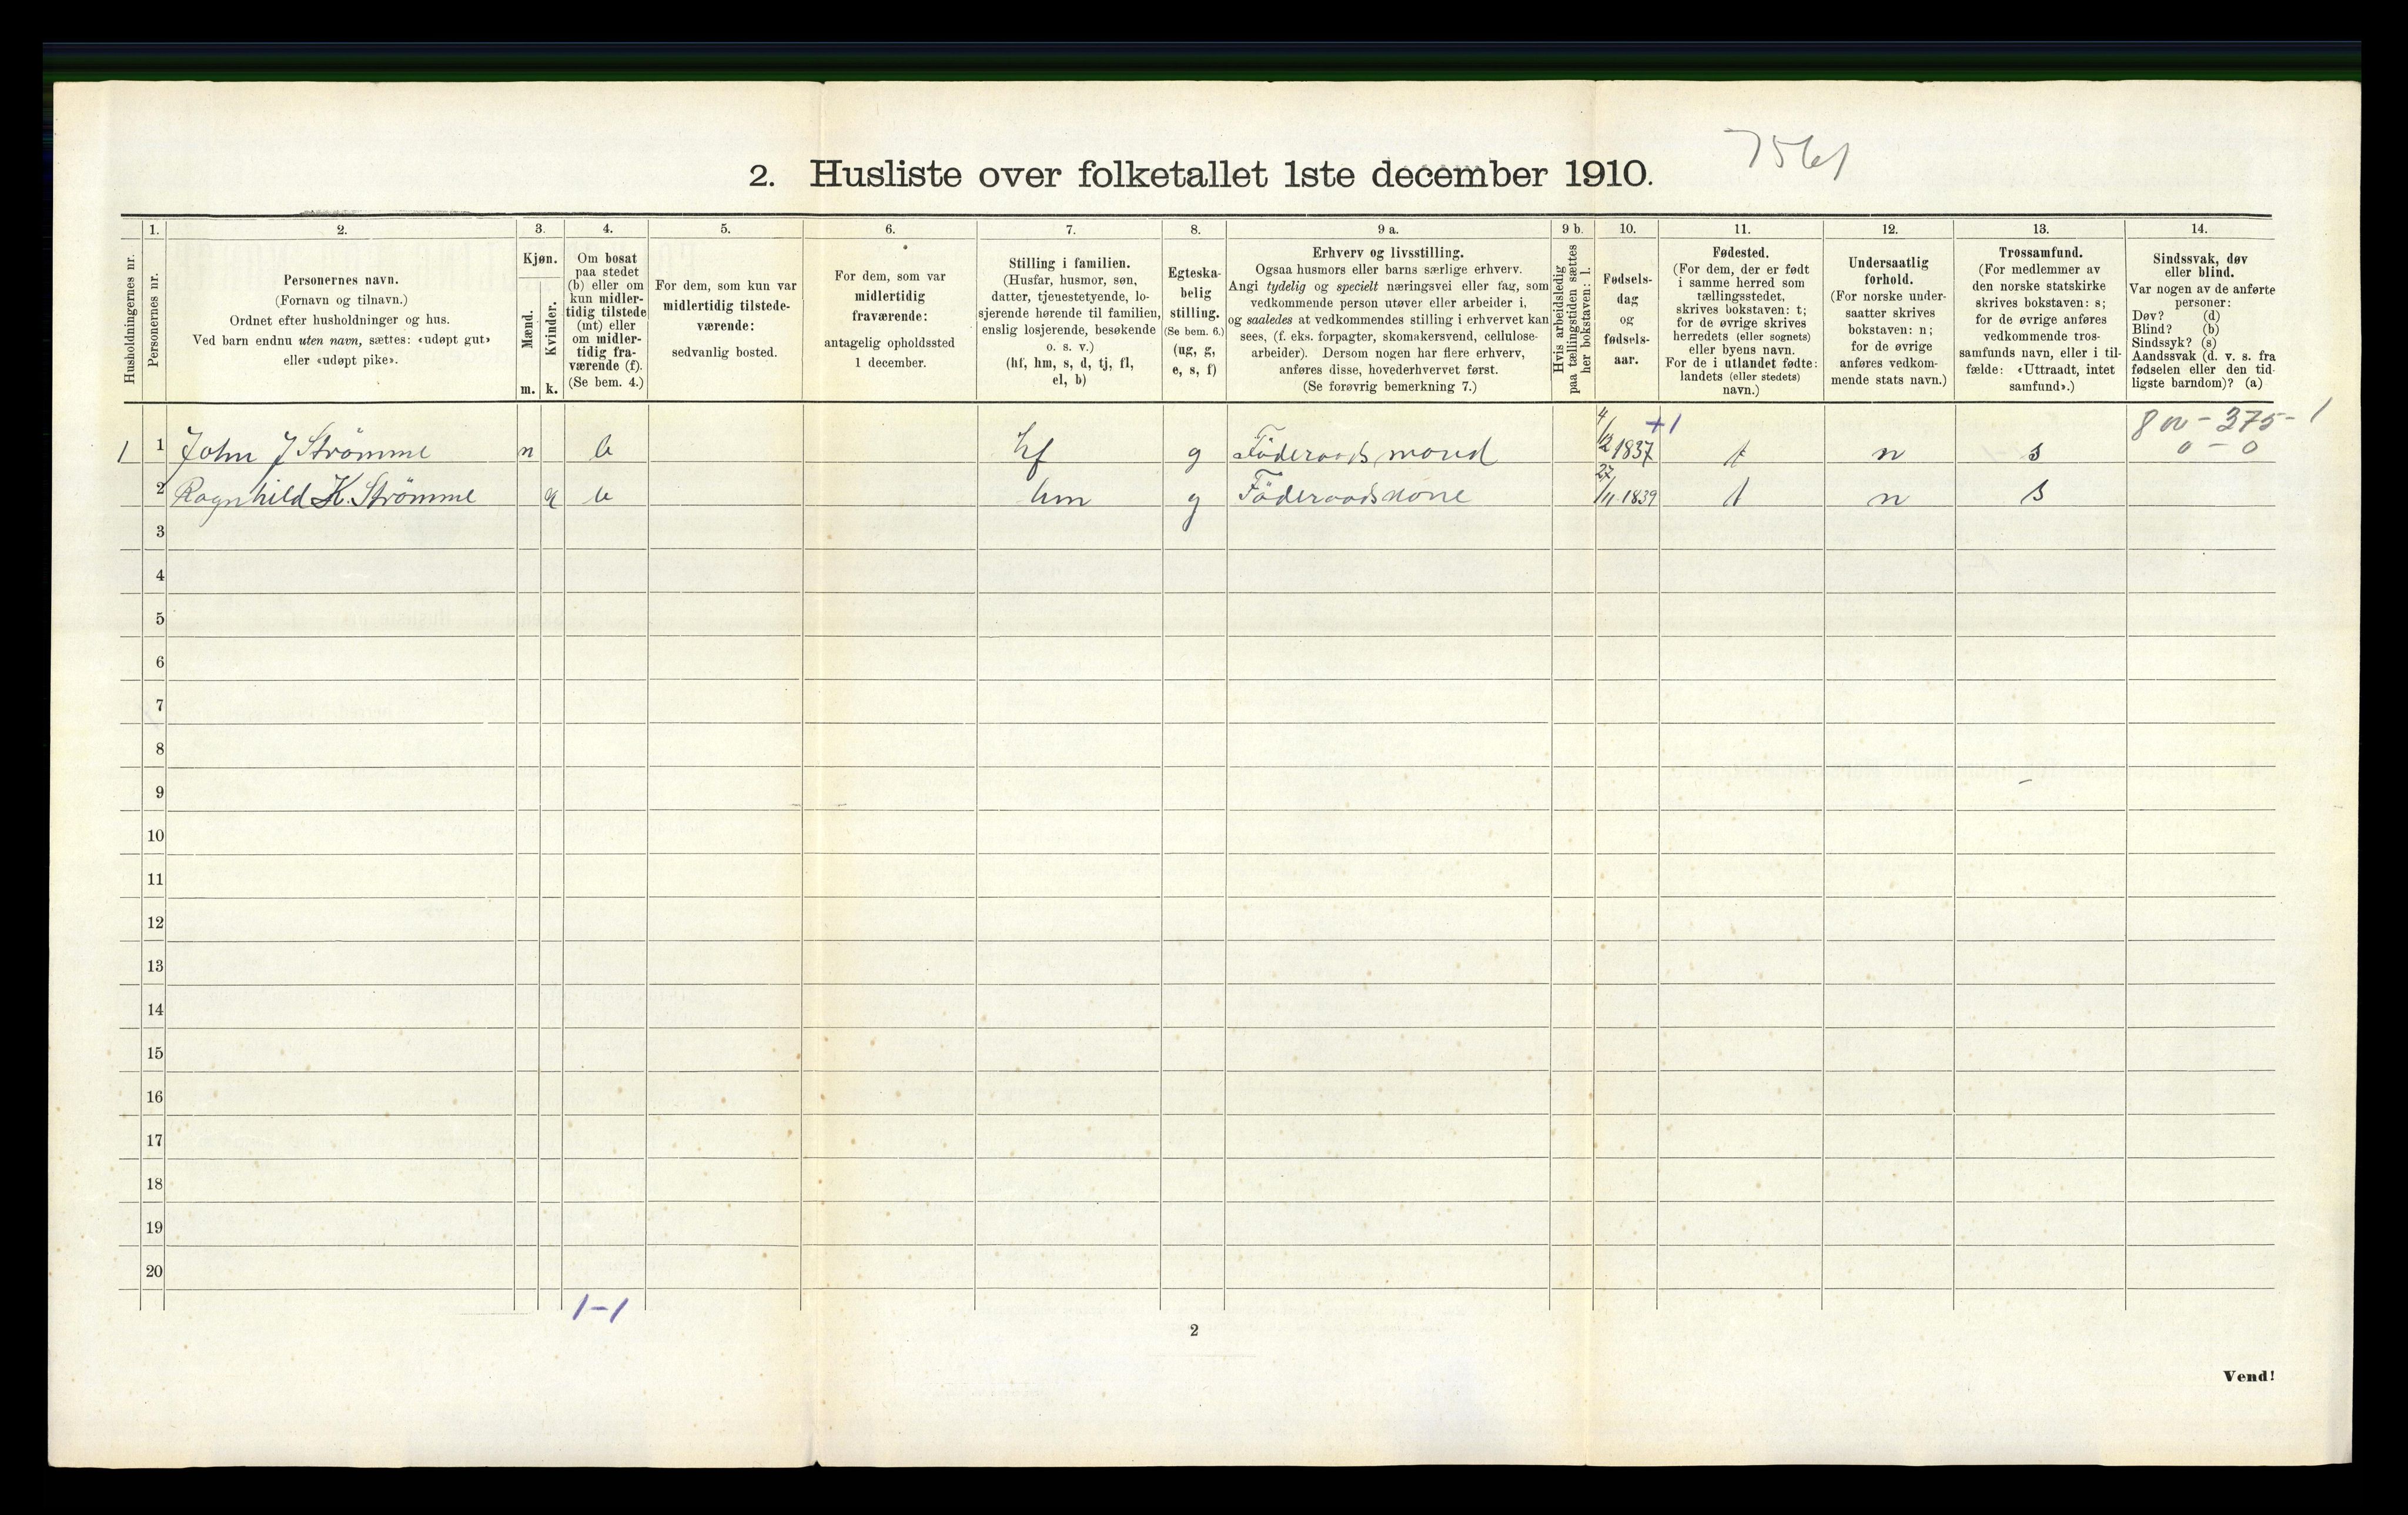 7561
2. Husliste over folketallet 1ste december 1910.
Husholdningernes nr.
1.
Personernes nr.
2.
Personernes navn.
(Fornavn og tilnavn.)
Ordnet efter husholdninger og hus.
Ved barn endnu uten navn, sættes: «udøpt gut»
eller «udøpt pike».
3.
Kjøn.
Mænd.
Kvinder.
m. k.
4.
Om bosat
paa stedet
(b) eller om
kun midler-
tidig tilstede
(mt) eller
om midler-
tidig fra-
værende (f).
(Se bem. 4.)
5.
For dem, som kun var
midlertidig tilstede-
værende:
sedvanlig bosted.
6.
For dem, som var
midlertidig
fraværende:
antagelig opholdssted
1 december.
7.
Stilling i familien.
(Husfar, husmor, søn,
datter, tjenestetyende, lo-
sjerende hørende til familien,
enslig losjerende, besøkende
o. s. v.)
(hf, hm, s, d, tj, fl,
el, b)
8.
Egteska-
belig
stilling.
(Se bem. 6.)
(ug, g,
e, s, f)
9 a.
Erhverv og livsstilling.
Ogsaa husmors eller barns særlige erhverv.
Angi tydelig og specielt næringsvei eller fag, som
vedkommende person utøver eller arbeider i,
og saaledes at vedkommendes stilling i erhvervet kan
sees, (f. eks. forpagter, skomakersvend, cellulose-
arbeider). Dersom nogen har flere erhverv,
anføres disse, hovederhvervet først.
(Se forøvrig bemerkning 7.)
9 b.
Hvis arbeidsledig
paa tællingstiden sættes
her bokstaven: l.
10.
Fødsels-
dag
og
fødsels-
aar.
11.
Fødested.
(For dem, der er født
i samme herred som
tællingsstedet,
skrives bokstaven: t;
for de øvrige skrives
herredets (eller sognets)
eller byens navn.
For de i utlandet fødte:
landets (eller stedets)
navn.)
12.
Undersaatlig
forhold.
(For norske under-
saatter skrives
bokstaven: n;
for de øvrige
anføres vedkom-
mende stats navn.)
13.
Trossamfund.
(For medlemmer av
den norske statskirke
skrives bokstaven: s;
for de øvrige anføres
vedkommende tros-
samfunds navn, eller i til-
fælde: «Uttraadt, intet
samfund».)
14.
Sindssvak, døv
eller blind.
Var nogen av de anførte
personer:
Døv? (d)
Blind? (b)
Sindssyk? (s)
Aandssvak (d. v. s. fra
fødselen eller den tid-
ligste barndom)? (a)
+1 800 - 375 - 1
0 - 0
1 1 John J Strömme n b hf g Föderaadsmand 4/12 1837 t n s
2 Ragnhild K. Strömme k b hm g Föderaadskone 27/11 1839 t n s
3
4
5
6
7
8
9
10
11
12
13
14
15
16
17
18
19
20
1-1
2
Vend!